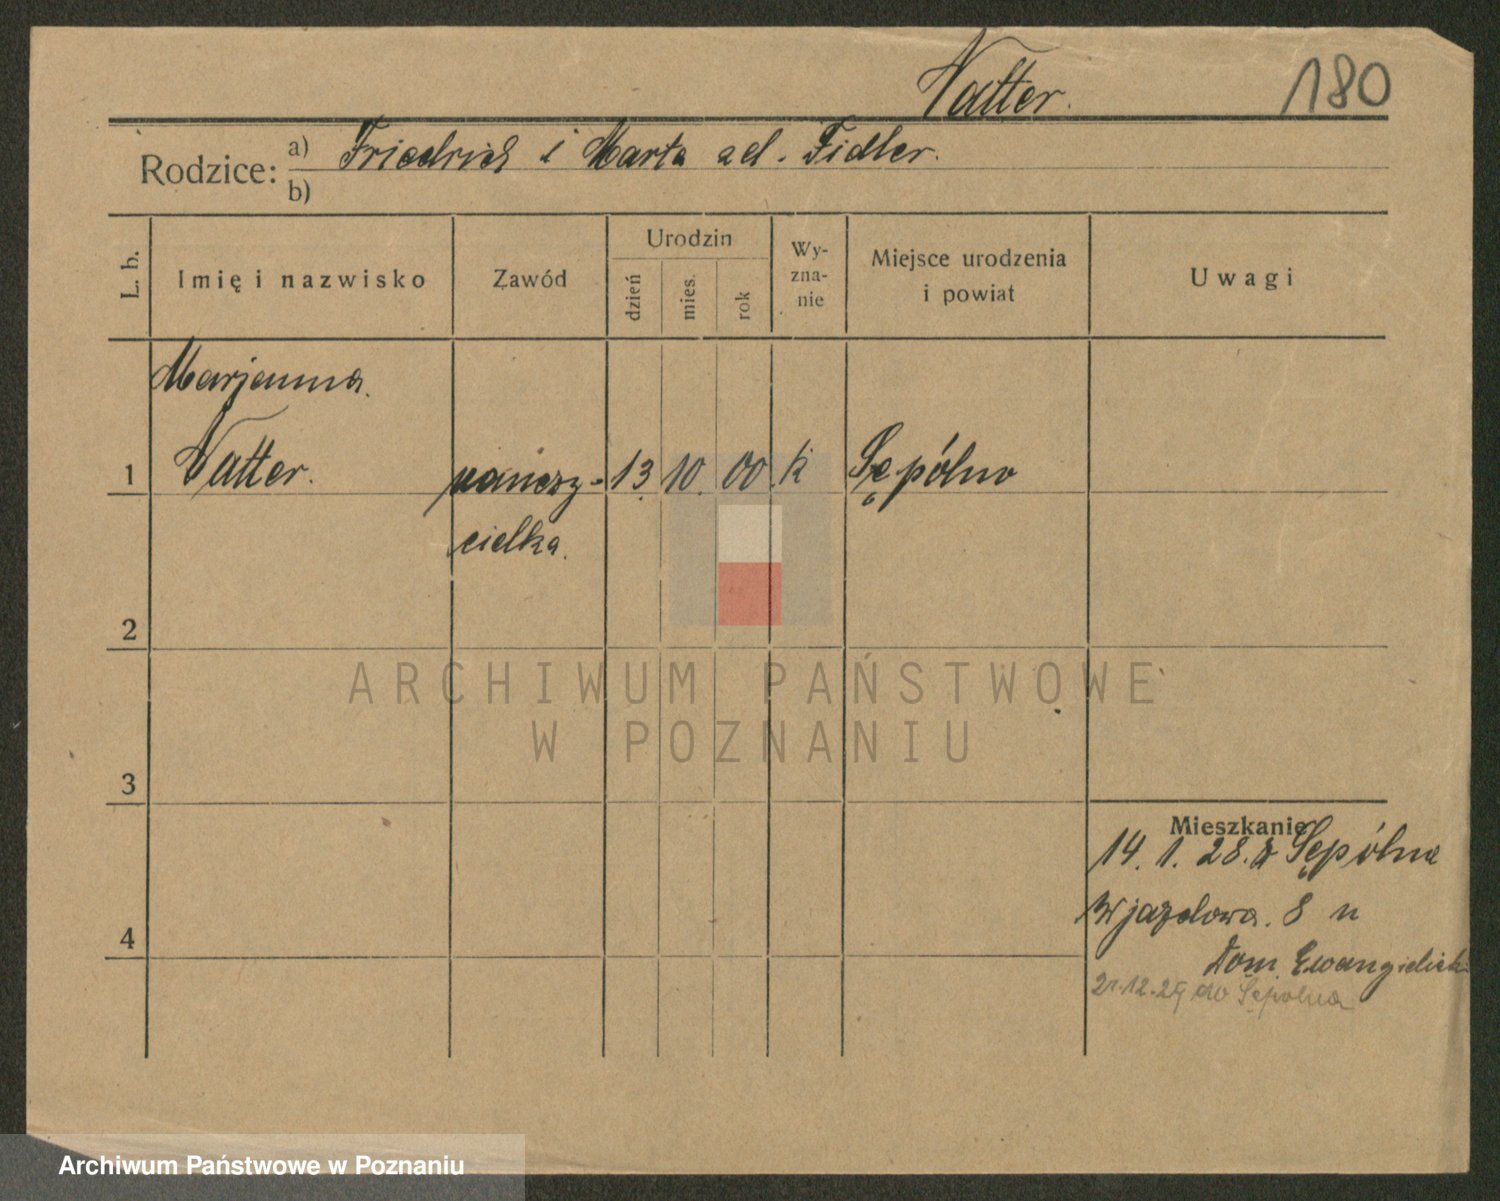 Natter.
180
Rodzice:
a) Friedrich i Marta zd. Fidler.
b)
L. b.
Imię i nazwisko
Zawód
Urodzin
dzień
mies.
rok
Wy-
zna-
nie
Miejsce urodzenia
i powiat
Uwagi
Marjanna.
1 Natter. 13. 10. 00. k Sępólno
cielka.
2
3
4
Mieszkanie
14. 1. 28. z Sępólna
Wjazdowa. 8 u
Dom. Ewangielick.
21.12.29 do Sępolna
ARCHIWUM PAŃSTWOWE
W POZNANIU
Archiwum Państwowe w Poznaniu